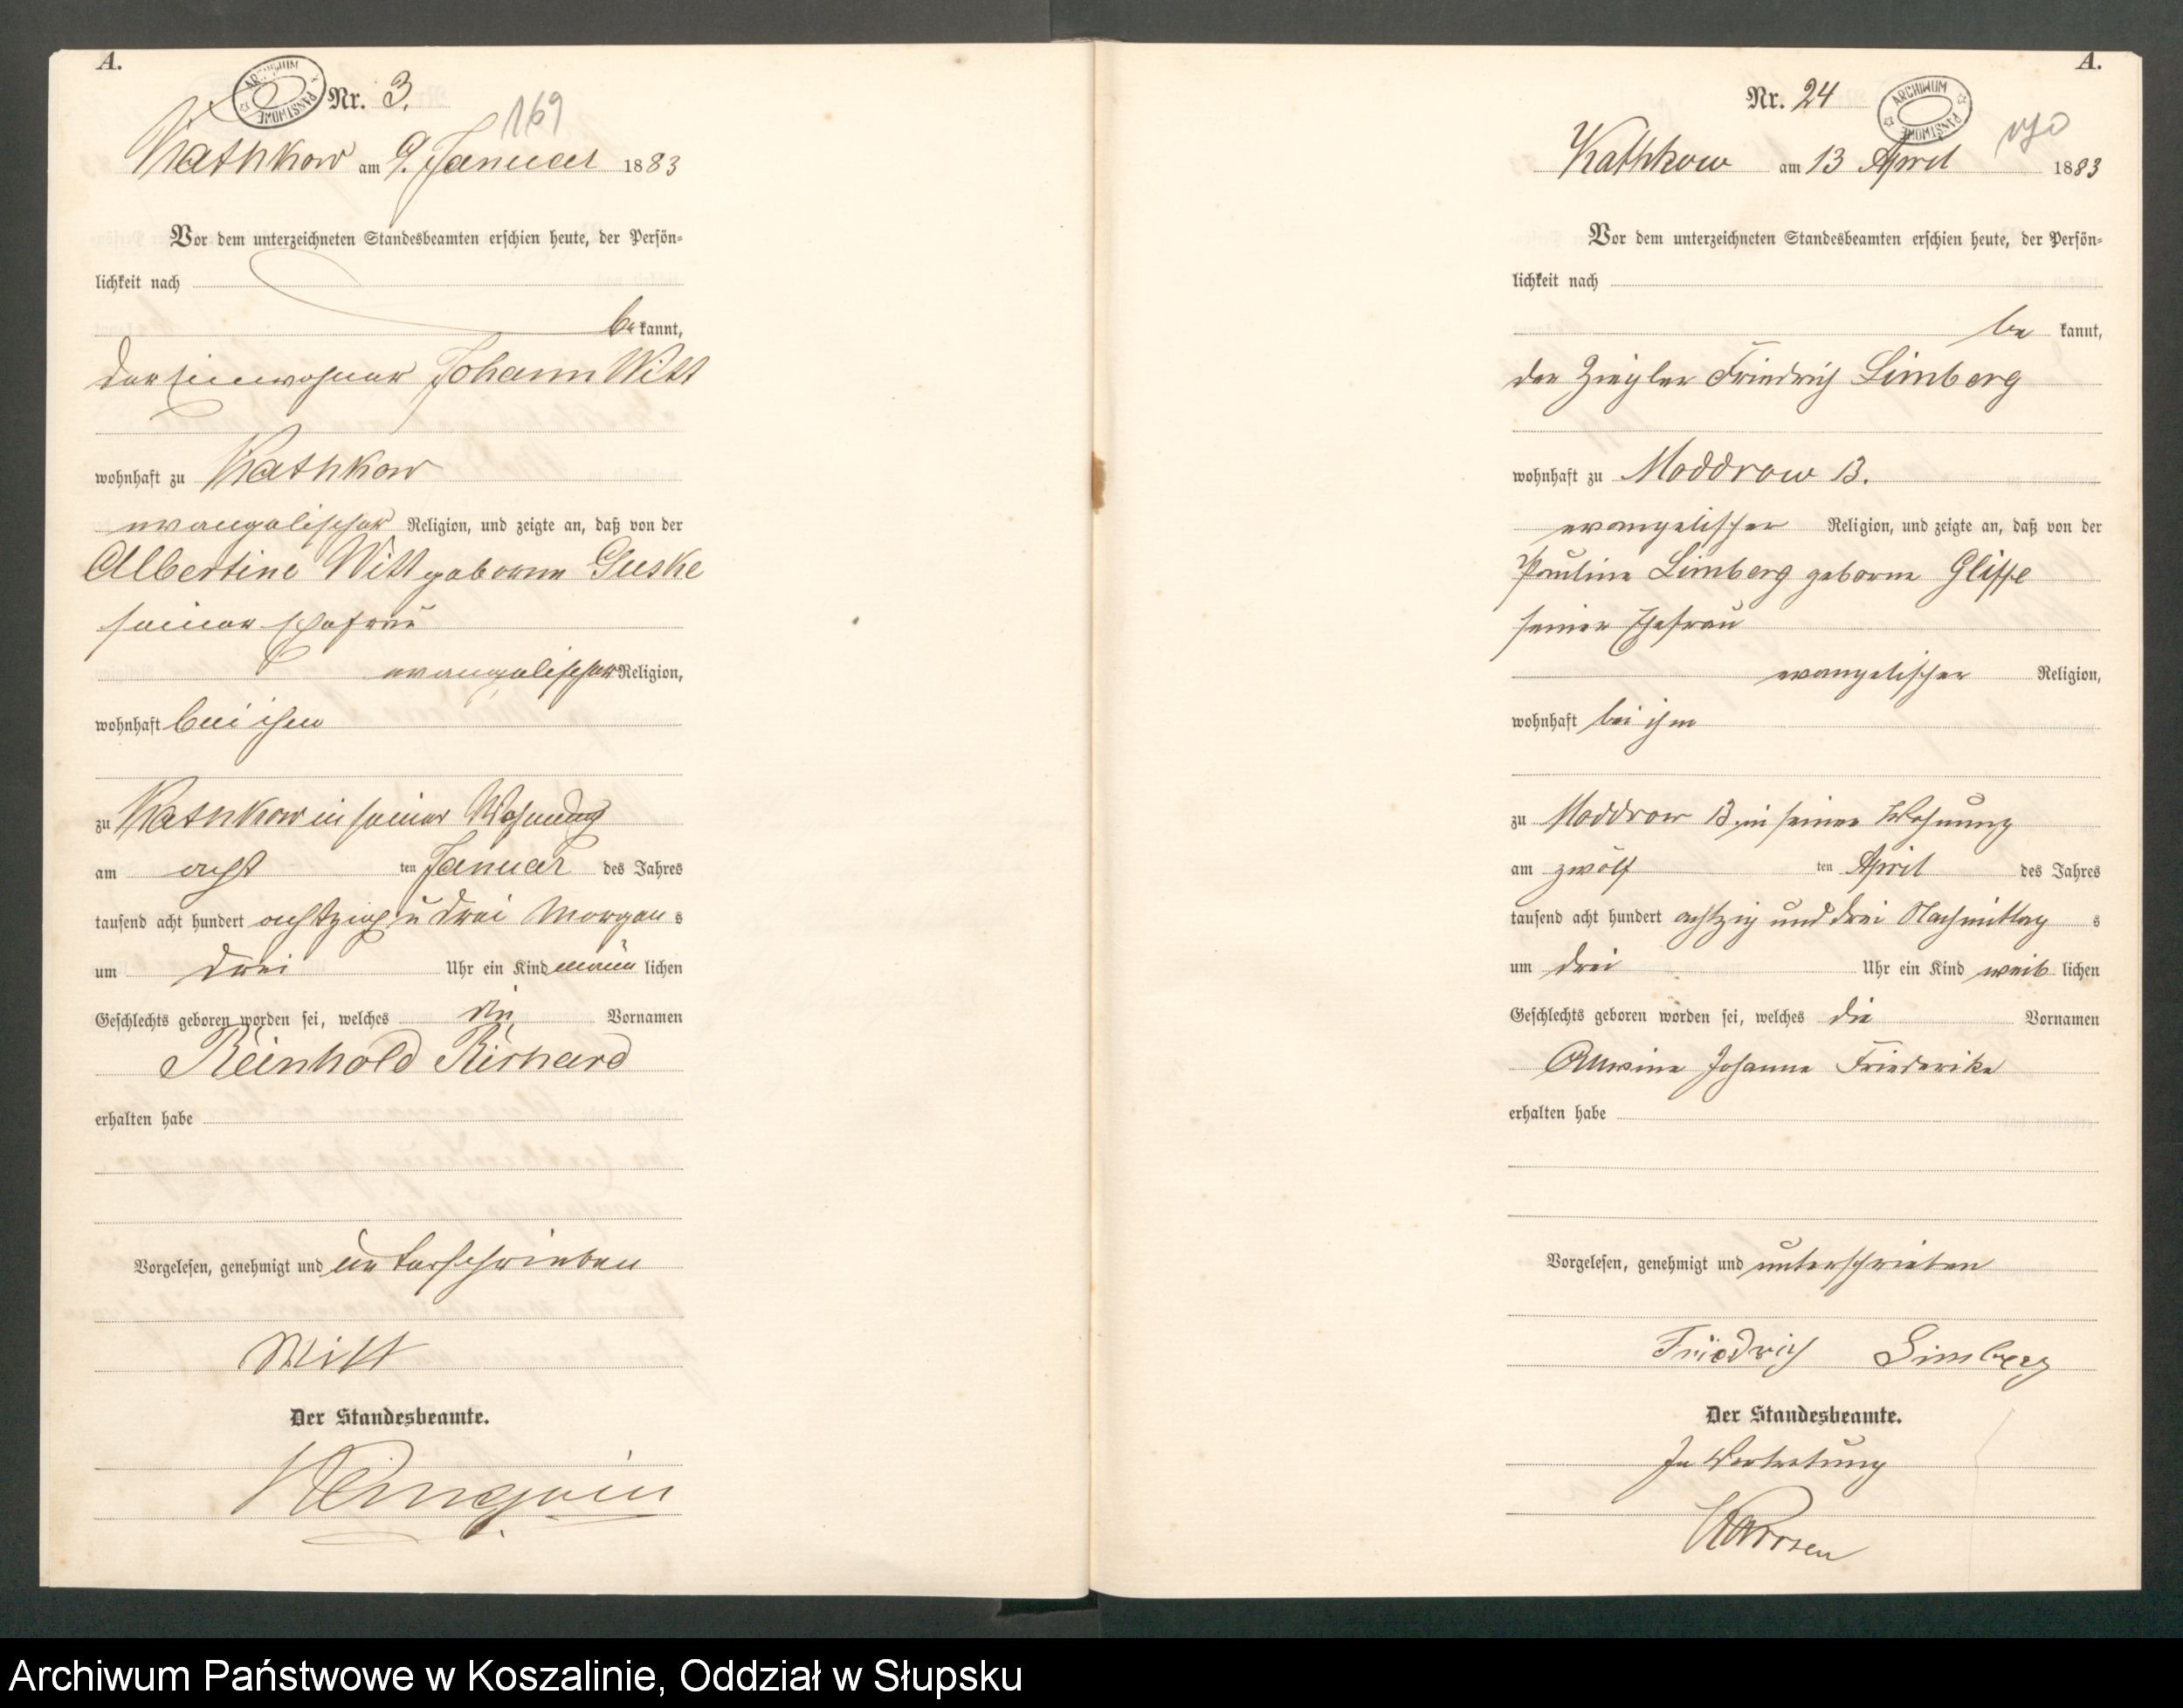 A.
ARCHIWUM PAŃSTWOWE
Nr. 3.
169
Kathkow am 9. Januar 1883
Vor dem unterzeichneten Standesbeamten erschien heute, der Persön-
lichkeit nach
be kannt,
der Einwohner Johann Witt
wohnhaft zu Kathkow
evangelischer Religion, und zeigte an, daß von der
Albertine Witt geborne Guske
seiner Ehefrau
evangelischer Religion,
wohnhaft bei ihm
zu Kathkow in seiner Wohnung
am acht ten Januar des Jahres
tausend acht hundert achtzig u drei Morgen s
um drei Uhr ein Kind männ lichen
Geschlechts geboren worden sei, welches die Vornamen
Reinhold Richard
erhalten habe
Vorgelesen, genehmigt und unterschrieben
Witt
Der Standesbeamte.
A.
Nr. 24
ARCHIWUM PAŃSTWOWE
170
Kathkow am 13 April 1883
Vor dem unterzeichneten Standesbeamten erschien heute, der Persön-
lichkeit nach
be kannt,
der Ziegler Friedrich Limberg
wohnhaft zu Moddrow B.
evangelischer Religion, und zeigte an, daß von der
Pauline Limberg geborne Glisse
seiner Ehefrau
evangelischer Religion,
wohnhaft bei ihm
zu Moddrow B. in seiner Wohnung
am zwölf ten April des Jahres
tausend acht hundert achtzig und drei Nachmittag s
um drei Uhr ein Kind weib lichen
Geschlechts geboren worden sei, welches die Vornamen
Alwine Johanne Friederike
erhalten habe
Vorgelesen, genehmigt und unterschrieben
Friedrich Limberg
Der Standesbeamte.
In Vertretung
Archiwum Państwowe w Koszalinie, Oddział w Słupsku